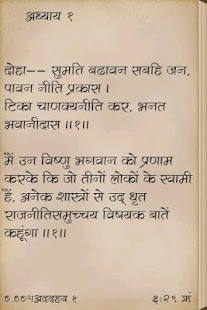 अध्याय १
दोहा-- सुमति बढावन सबहि जन,
पावन नीति प्रकास ।
टिका चाणक्यनीति कर, भनत
भवानीदास ॥१॥
मैं उन विष्णु भगवान को प्रणाम
करके कि जो तीनों लोकों के स्वामी
हैं, अनेक शास्त्रों से उद् धृत
राजनीतिसमुच्चय विषयक बातें
कहूंगा ॥१॥